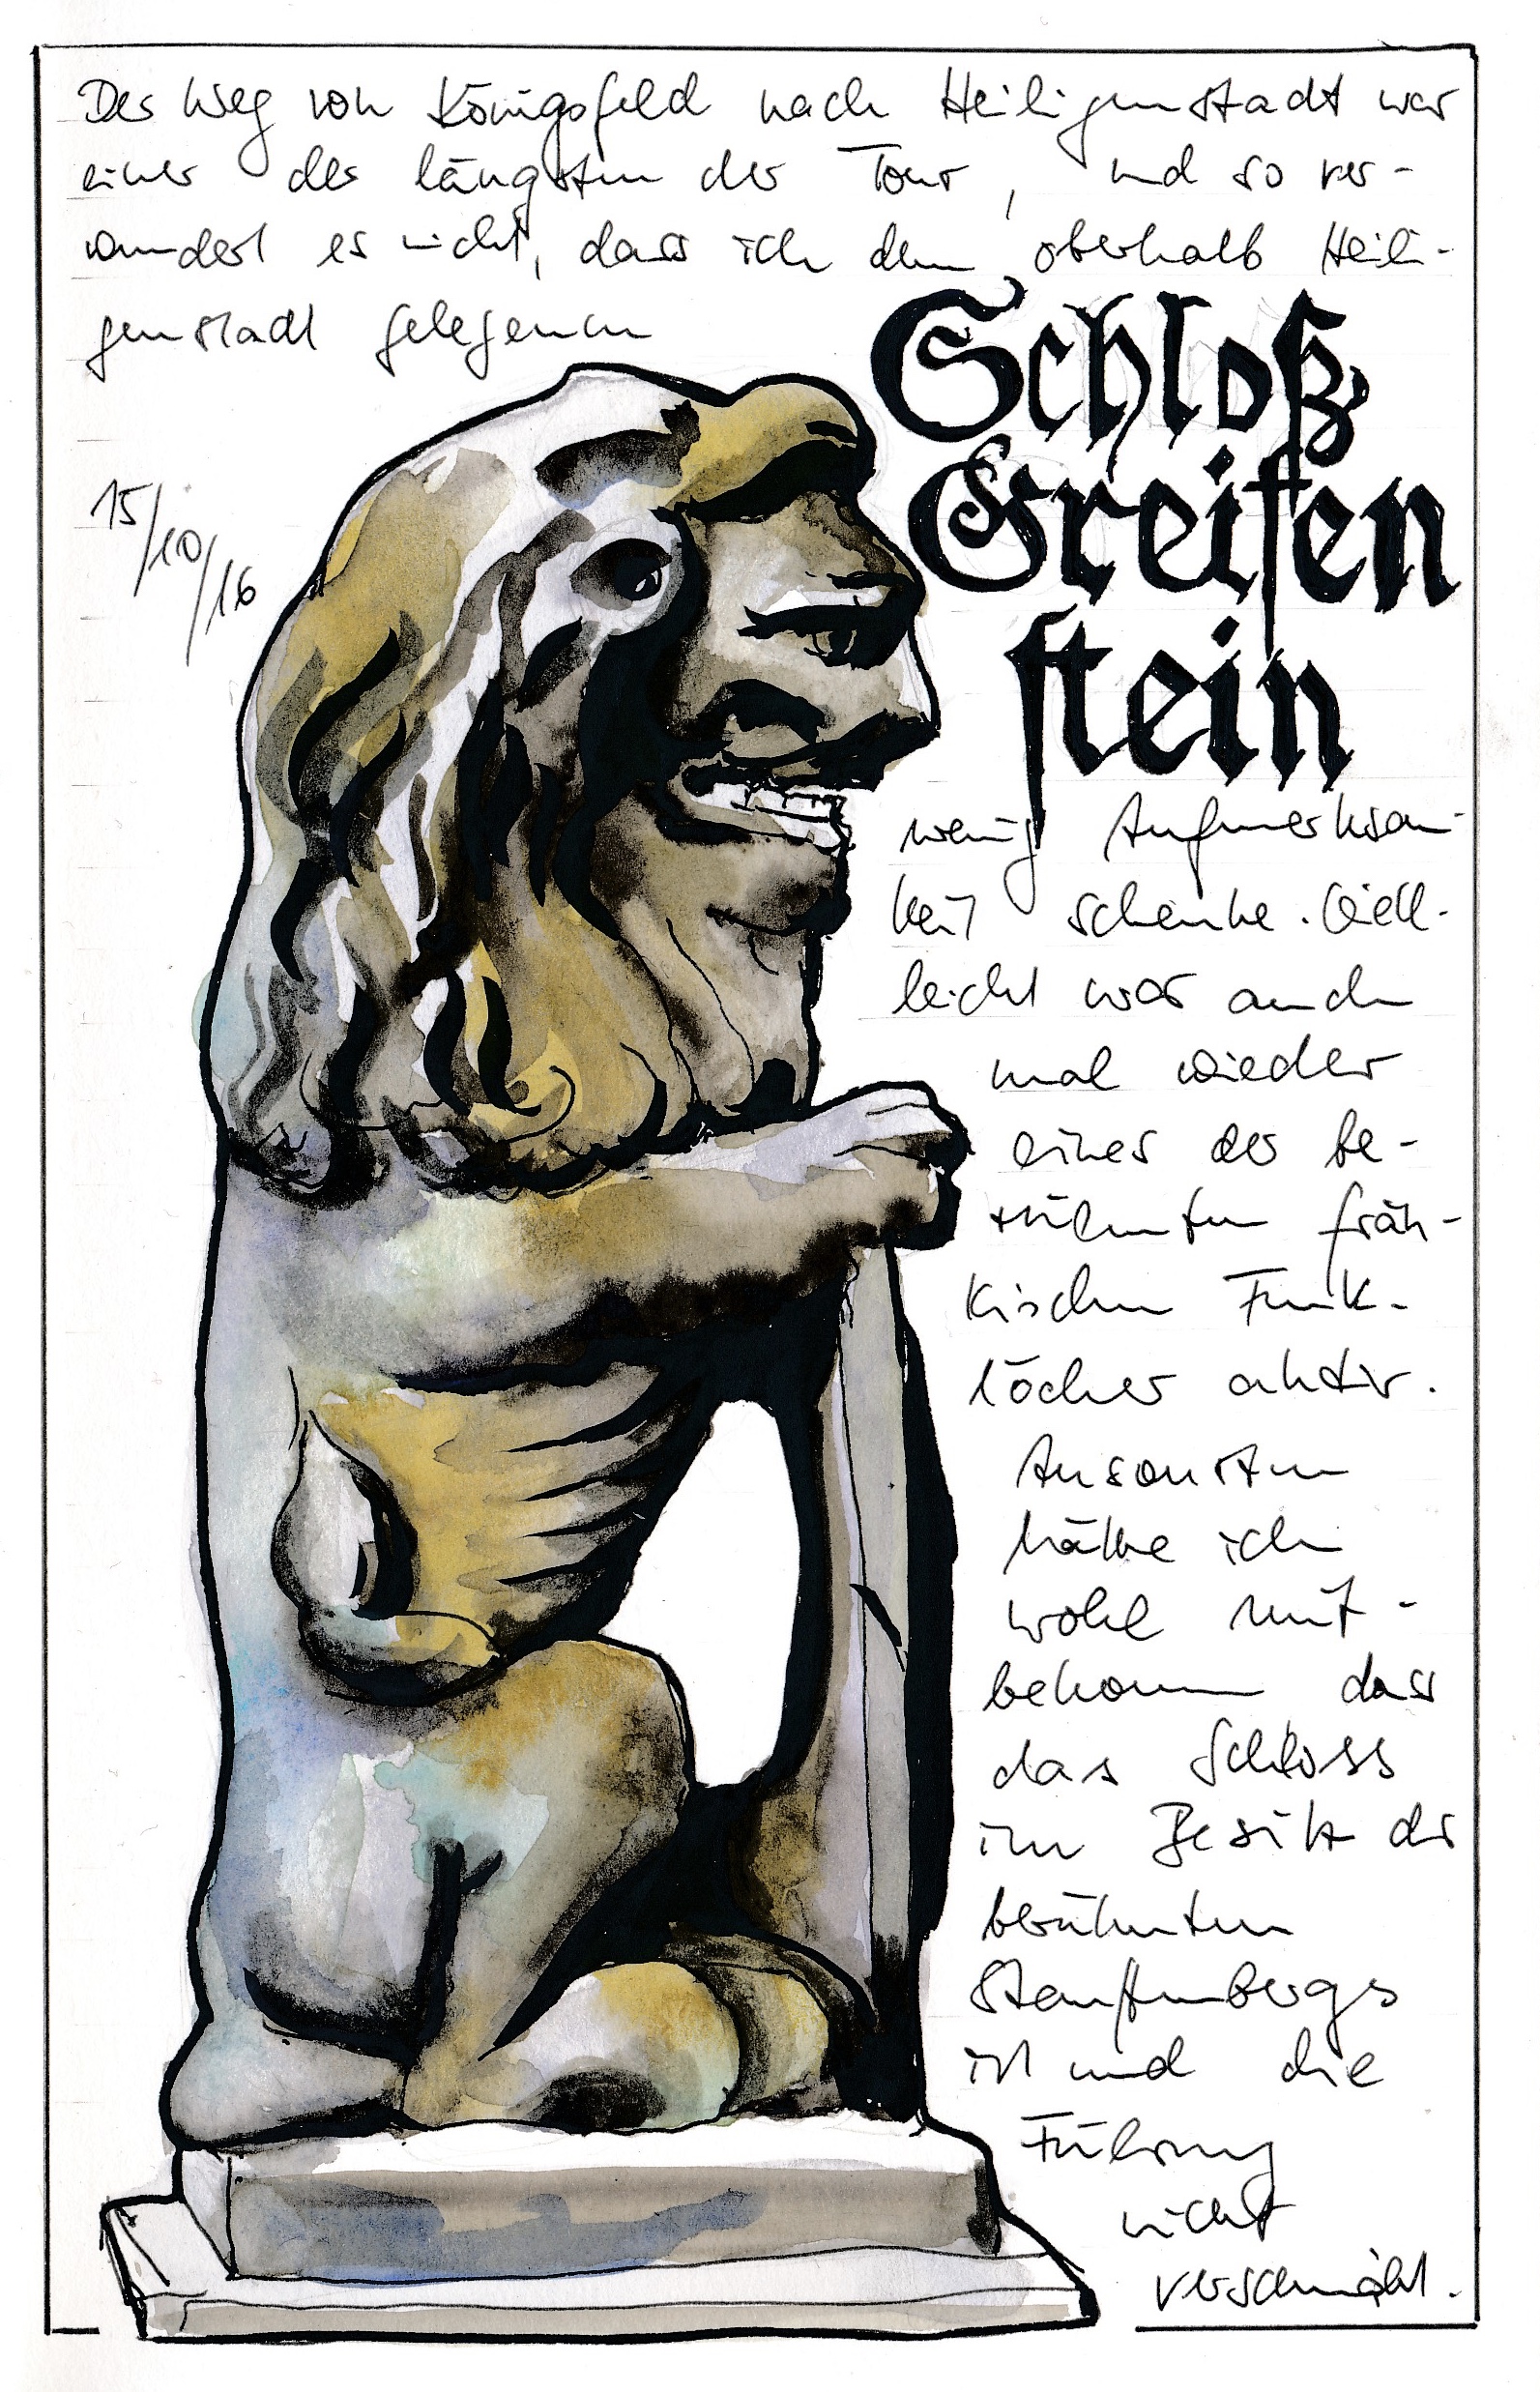 Der Weg von Königsfeld nach Heiligenstadt war
einer der längsten der Tour, und so ver-
wundert es nicht, dass ich dem oberhalb Heili-
genstadt gelegenen
Schloß
Greifen
stein
15/10/16
wenig Aufmerksam-
keit schenke. Viell-
leicht war auch
mal wieder
eines der be-
rühmten frän-
kischen Funk-
löcher aktiv.
Ansonsten
hätte ich
wohl mit-
bekommen dass
das Schloss
im Besitz der
berühmten
Stauffenbergs
ist und die
Führung
nicht
verschmäht.